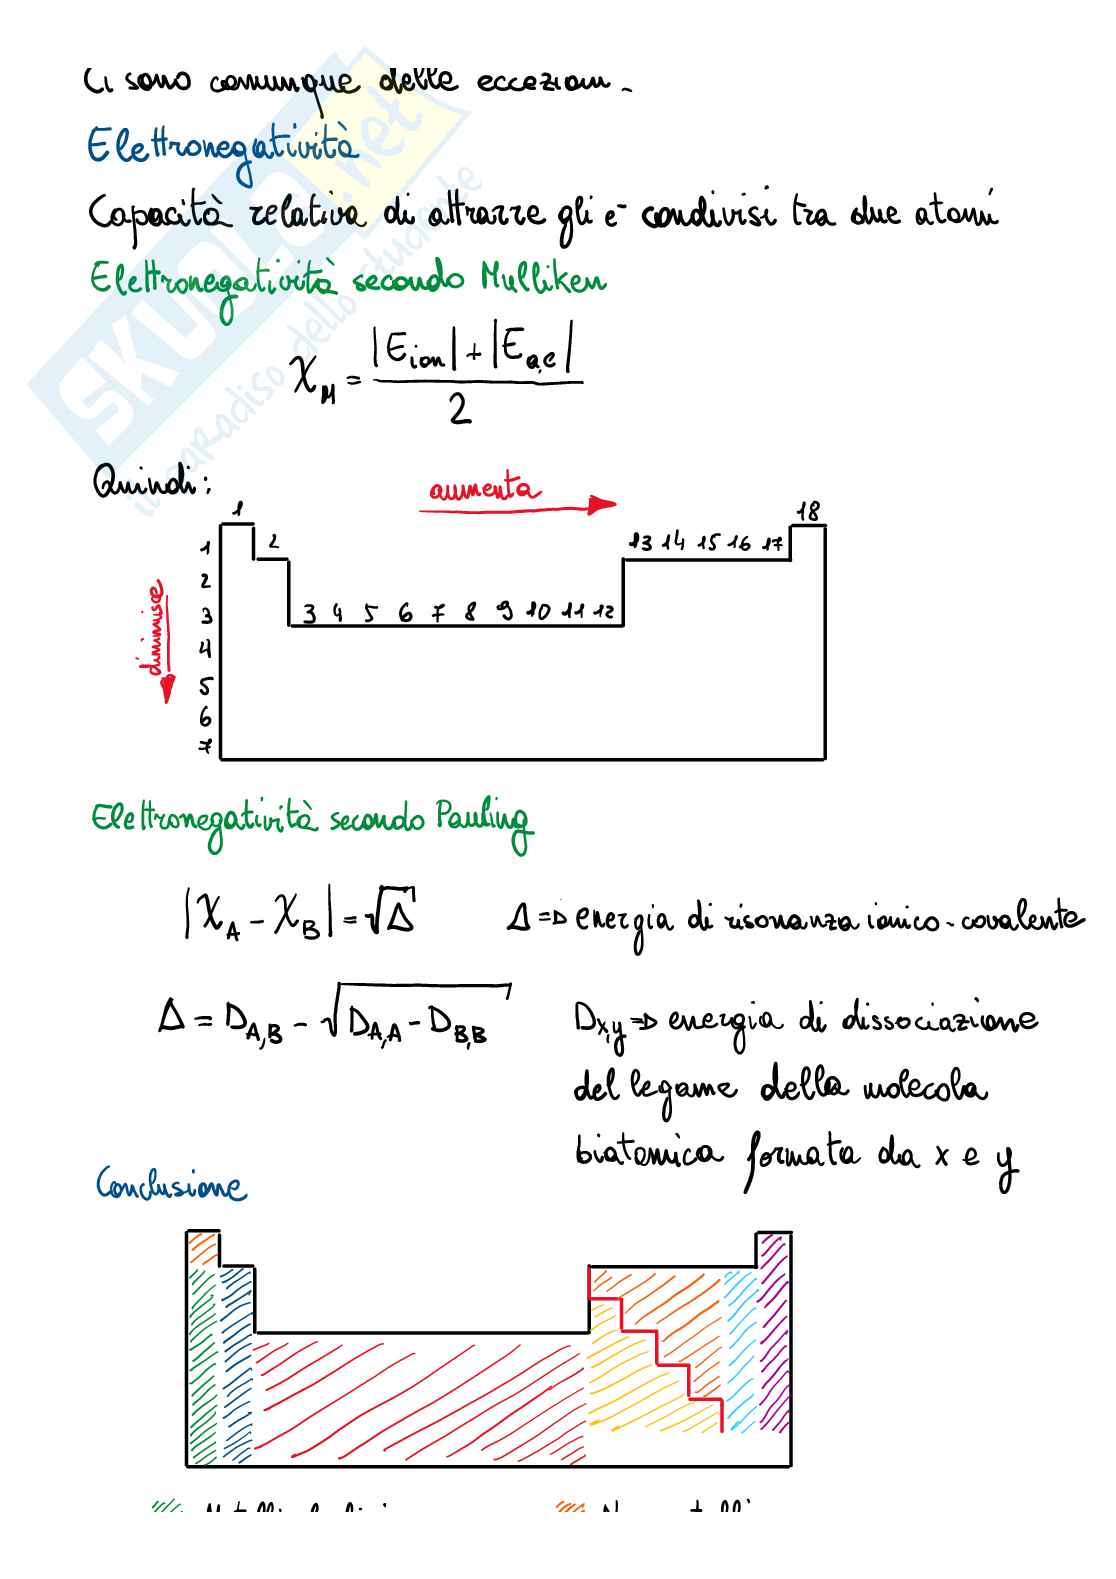 Ci sono comunque delle eccezioni.
Elettronegatività
Capacità relativa di attrarre gli e⁻ condivisi tra due atomi
Elettronegatività secondo Mulliken
χ_M = (|E_ion| + |E_a.e|) / 2
Quindi:
aumenta
1 18
1 2 13 14 15 16 17
2
3 3 4 5 6 7 8 9 10 11 12
4
5
6
7
diminuisce
Elettronegatività secondo Pauling
|χ_A - χ_B| = √Δ Δ => energia di risonanza ionico-covalente
Δ = D_A,B - √(D_A,A - D_B,B) D_x,y => energia di dissociazione
del legame della molecola
biatomica formata da x e y
Conclusione
SKUOLA.net
il paradiso dello studente